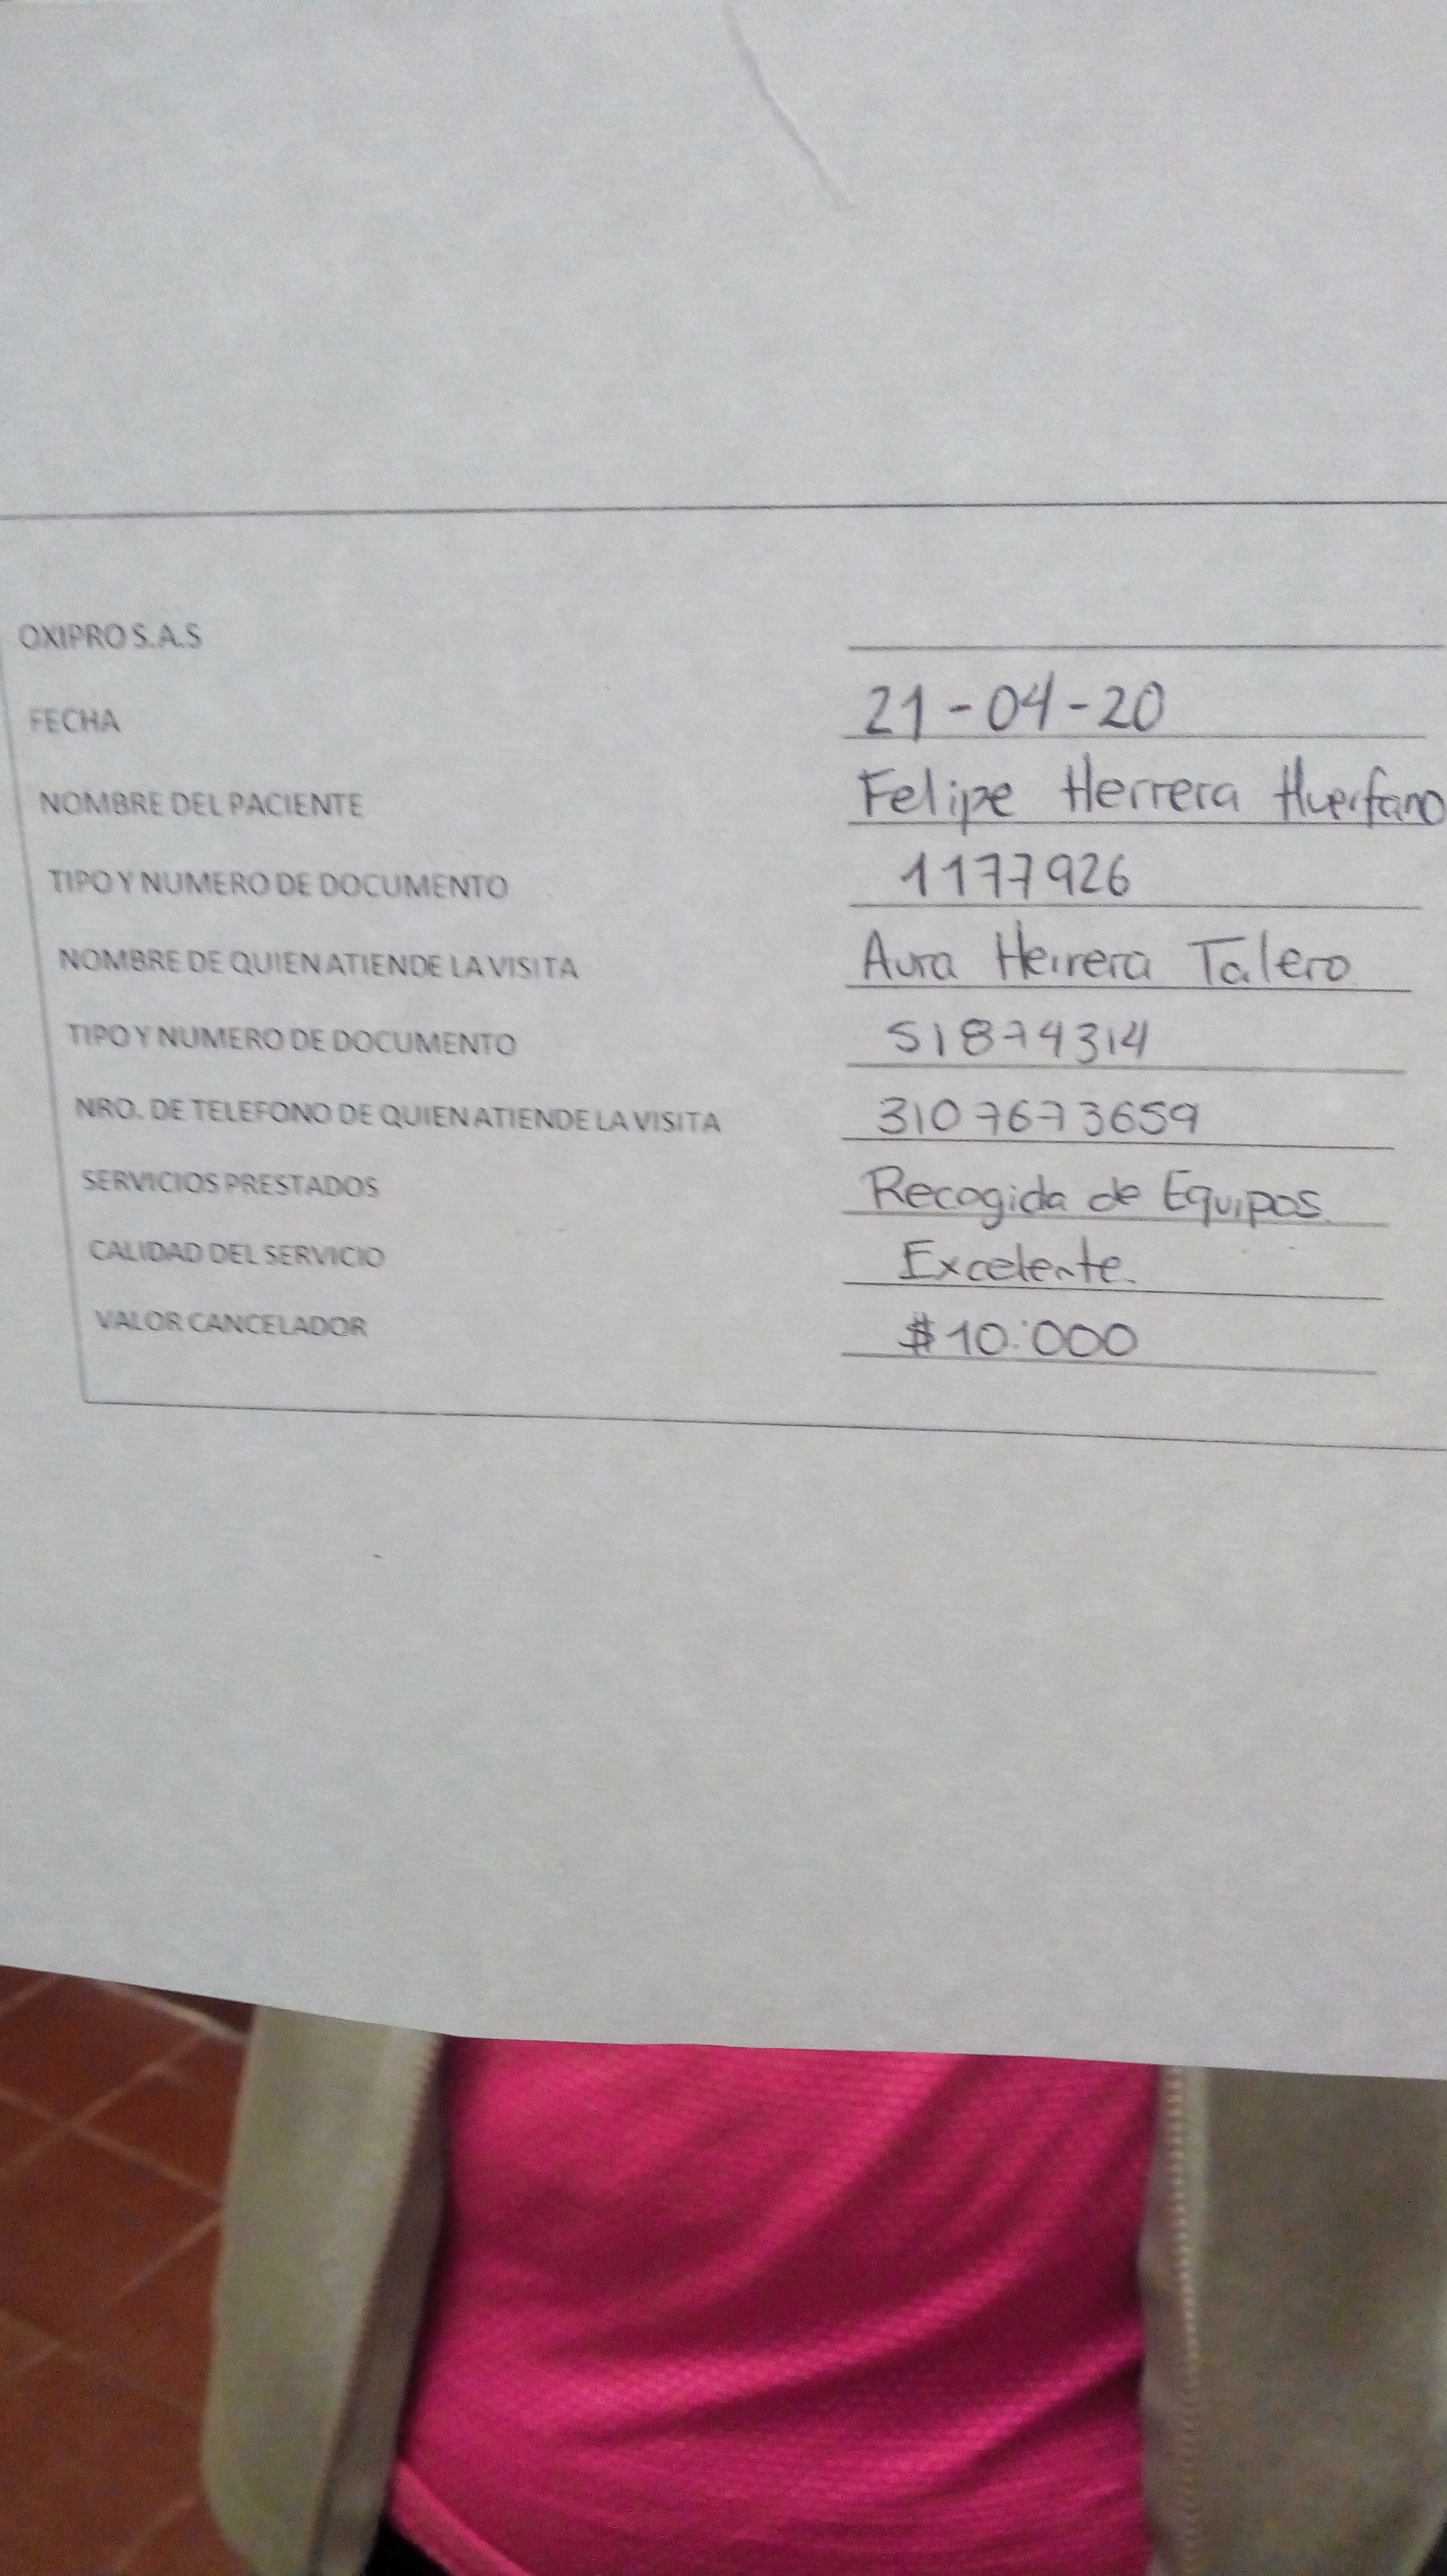 OXIPRO S.A.S
FECHA 21-04-20
NOMBRE DEL PACIENTE Felipe Herrera Huerfano
TIPO Y NUMERO DE DOCUMENTO 1177926
NOMBRE DE QUIEN ATIENDE LA VISITA Aura Herrera Talero
TIPO Y NUMERO DE DOCUMENTO 51874314
NRO. DE TELEFONO DE QUIEN ATIENDE LA VISITA 3107673659
SERVICIOS PRESTADOS Recogida de Equipos.
CALIDAD DEL SERVICIO Excelente.
VALOR CANCELADOR $10.000